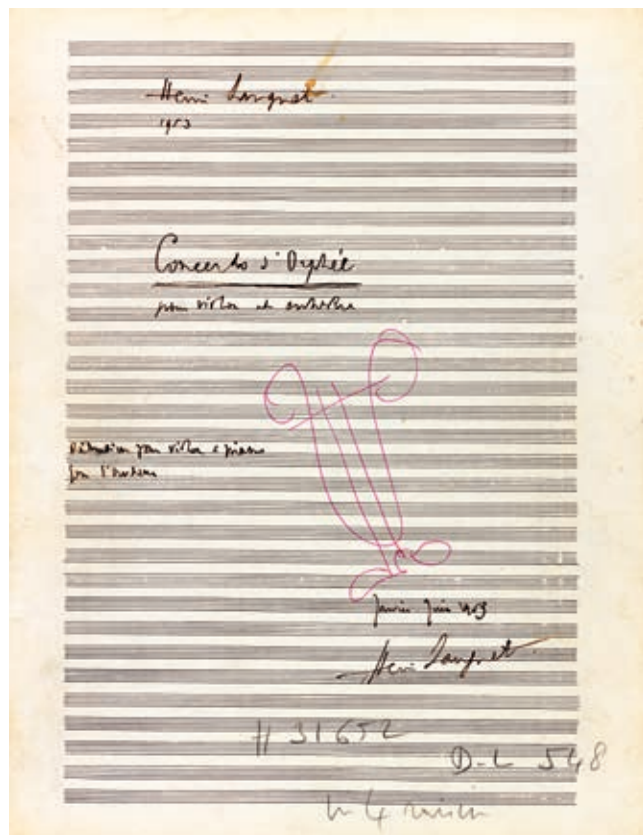 Henri Sauguet
1953
Concerto d'Orphée
pour violon et orchestre
Réduction pour violon & piano
par l'auteur
Janvier Juin 1953
Henri Sauguet
H 31652
D-L 548